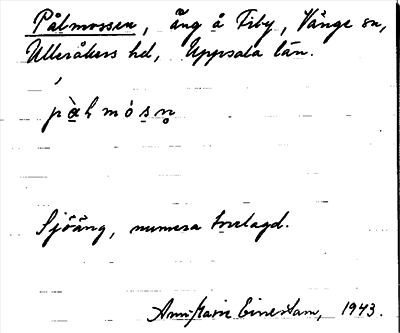 Pålmossen, äng å Fiby, Vänge sn,
Ulleråkers hd, Uppsala län.
Sjöäng, numera torrlagd.
Ann-Marie Einerstam, 1943.